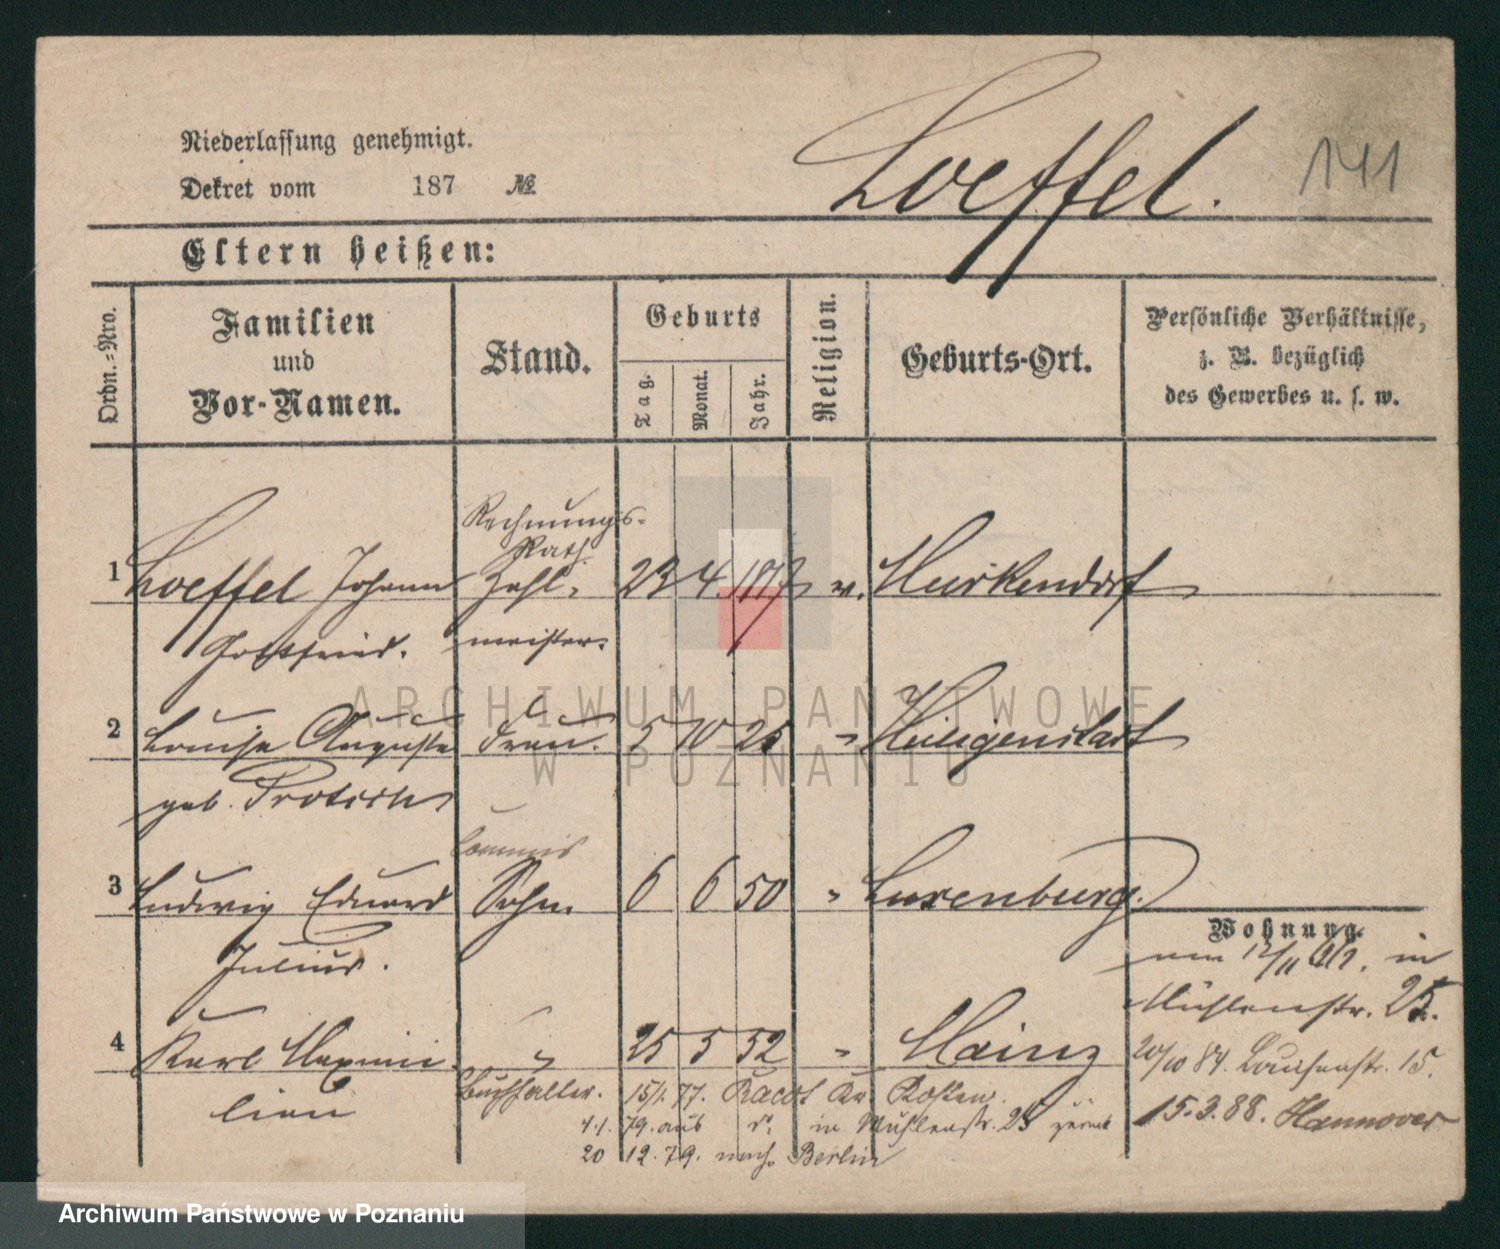 Niederlassung genehmigt.
Dekret vom 187 №
Loeffel.
141
Eltern heißen:
Ordn.=Nro.
Familien
und
Vor-Namen.
Stand.
Geburts
Tag.
Monat.
Jahr.
Religion.
Geburts-Ort.
Persönliche Verhältnisse,
z. B. bezüglich
des Gewerbes u. s. w.
Rechnungs-
Rath
1 Loeffel Johann Zahl- 23 4. v.
Gottfried. meister.
ARCHIWUM PAŃSTWOWE
W POZNANIU
2 Louise Auguste Frau. 5 10 25 " Heiligenstadt
geb.
Commis
3 Ludwig Eduard Sohn. 6 6 50 " Luxenburg.
Julius.
Wohnung.
in
Mühlenstr. 25.
4 Karl Maximi " 25 5 52 " Mainz
lian
20/10 84. Louisenstr. 15.
Buchhalter. 15/1. 77. Racot Kr. Kosten.
4.1. 79. aus in Mühlenstr. 25 zurück
15.3.88. Hannover
20 12. 79. nach Berlin
Archiwum Państwowe w Poznaniu